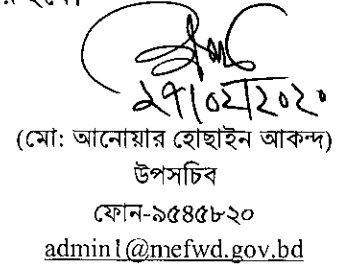 ২৭/০২/২০২০
(মো: আনোয়ার হোছাইন আকন্দ)
উপসচিব
ফোন-৯৫৪৫৮২০
admin1@mefwd.gov.bd